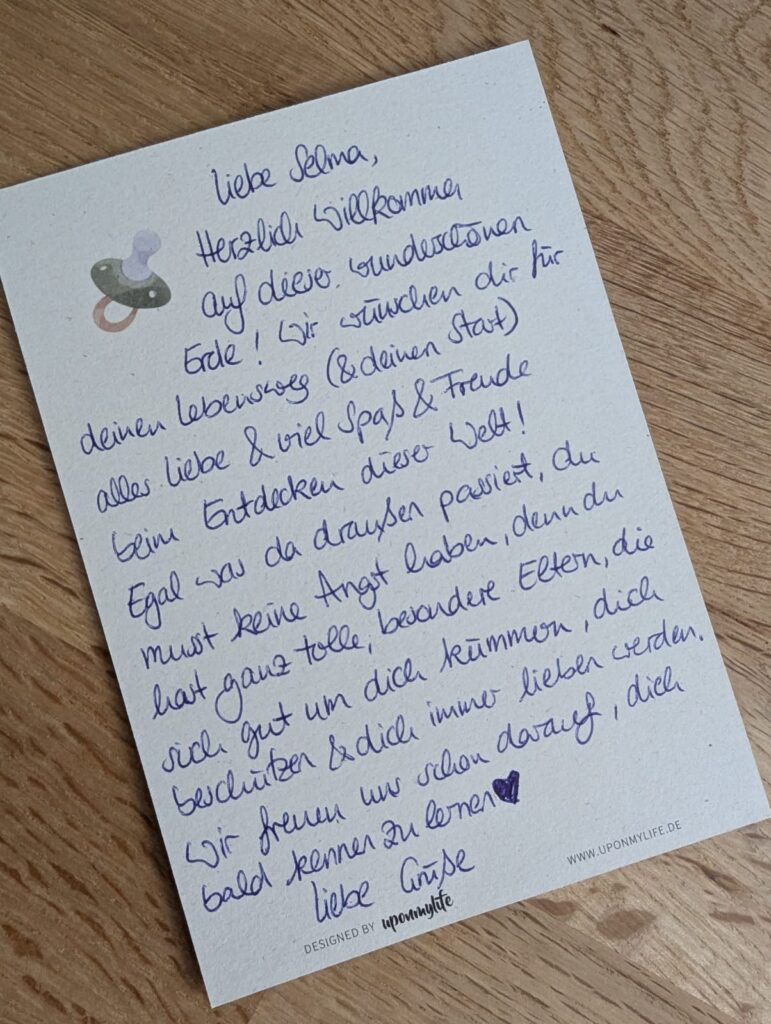 Liebe Selma,
Herzlich Willkommen
auf dieser wunderschönen
Erde! Wir wünschen dir für
deinen Lebensweg (& deinen Start)
alles Liebe & viel Spaß & Freude
beim Entdecken dieser Welt!
Egal was da draußen passiert, du
musst keine Angst haben, denn du
hast ganz tolle, besondere Eltern, die
sich gut um dich kümmern, dich
beschützen & dich immer lieben werden.
Wir freuen uns schon darauf, dich
bald kennen zu lernen♥
Liebe Grüße
WWW.UPONMYLIFE.DE
DESIGNED BY uponmylife